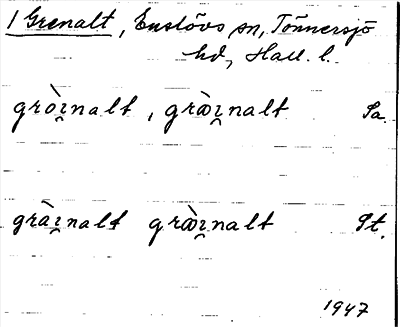 1 Grenalt, Enslövs sn, Tönnersjö
hd, Hall. l.
gròi̯nalt, græ̀i̯nalt Sa.
grài̯nalt græ̀i̯nalt St.
1947